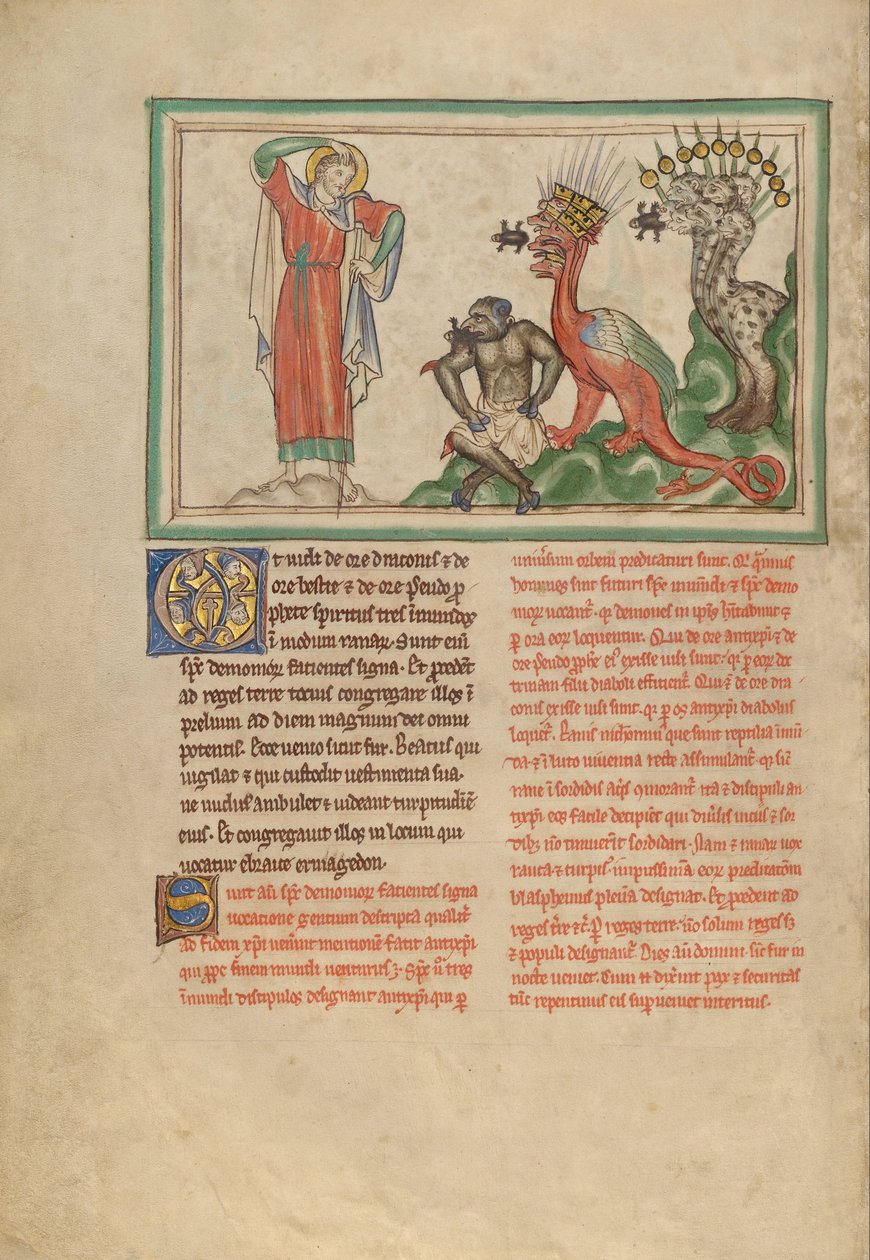 Et uidi de ore draconis ⁊ de
ore bestie ⁊ de ore pseudo ꝓ
phete spiritus tres īmundos
ī modum ranaꝝ. Sunt eni͂
spc͂ demonioꝝ facientes signa. Et ꝓcedēt
ad reges terre tocius congregare illos ī
prelium ad diem magnum dei omni
potentis. Ecce uenio sicut fur. Beatus qui
uigilat ⁊ qui custodit uestimenta sua.
ne nudus ambulet ⁊ uideant turpitudiē
eius. Et congregauit illos in locum qui
uocatur ebraice ermagedon.
Sunt au͂ spc͂ demonioꝝ facientes signa
uocatione gentium descripta qualit͛
ad fidem xp̄i uen͛int mentionem facit antixp̄i
qui ꝓpe finem mundi uenturus
īmundi discipulos designant antixp̄i qui ꝑ
uniu͛sum orbem predicaturi sunt. Et
homines sint futuri spc͂ inmundi ⁊ spc͂ demo
nioꝝ uocant͛. qꝛ demones in ip̄is h̄itabunt ⁊
ꝑ ora eoꝝ loquentur. Qui de ore antixp̄i ⁊ de
ore pseudo ꝓph̄e ei᷒ exisse uisi sunt. qꝛ ꝑ eoꝝ doc
trinam filii diaboli efficient͛. Qui ⁊ de ore dra
conis exisse uisi sunt. qꝛ ꝑ os antixp̄i diabolus
loquet͛. Ranis nichominus que sunt reptilia īmū
da ⁊ ī luto uiuentia recte assimulant͛. qꝛ sic̄
rane ī sordidis aq̄s ⁊ discipuli an
tixp̄i eos facile decipiēt qui diu͛sis uiciis ⁊ sor
dibꝫ n̄o timuer̄it sordidari. Nam ⁊ ranaꝝ uox
rauca ⁊ turpis. impiissimā eoꝝ predicatōem
blasphemiis plenā designat. Et ꝓcedent ad
reges t͛re ⁊c͛. Per reges terre. n̄o solum reges sꝫ
⁊ populi designant͛. Dies au͂ domini. sic̄ fur in
nocte ueniet. Cum eī dix͛int pax ⁊ securitas
tūc repentinus eis sup͛ueniet interitus.